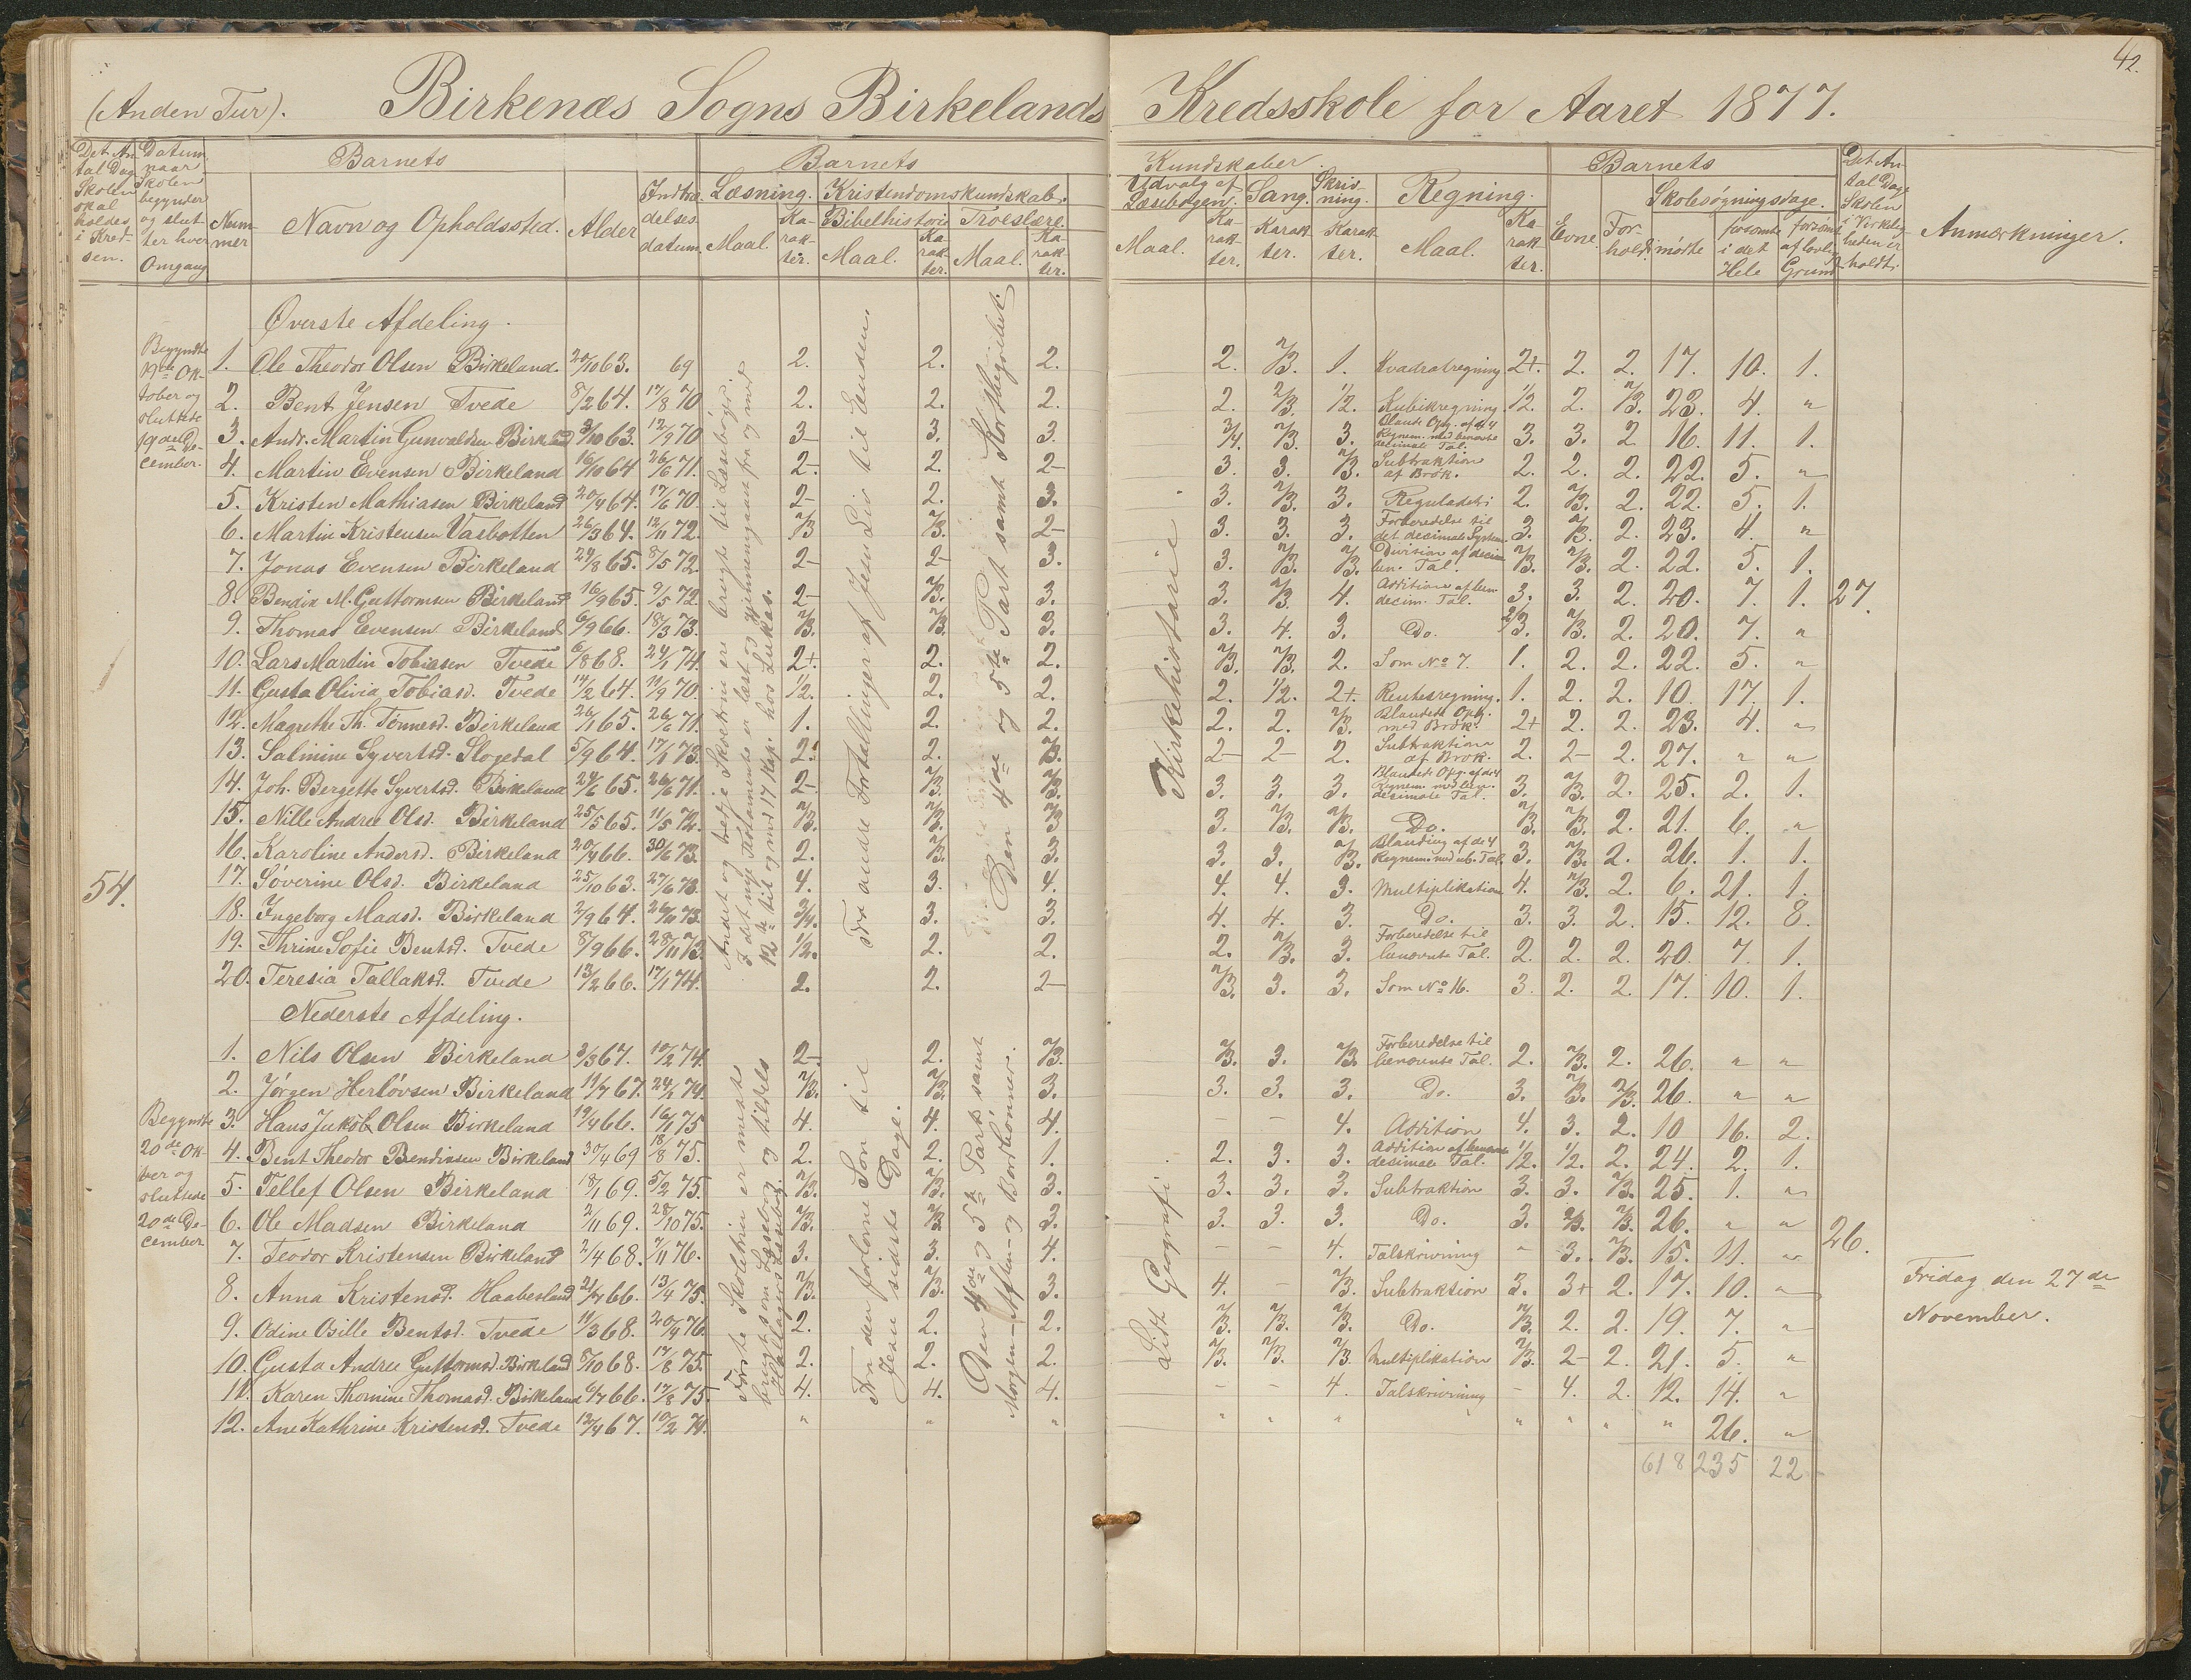 42.
(Anden Tur). Birkenæs Sogns Birkelands Kredsskole for Aaret 1877.
Det Antal Dage Skolen skal holdes i Kredsen.
Datum naar Skolen begynder og slutter hver Omgang
Barnets
Nummer
Navn og Opholdssted.
Alder
Indtrædelsesdatum.
Barnets Kundskaber
Læsning.
Maal.
Karakter.
Kristendomskundskab.
Bibelhistorie
Maal.
Karakter.
Troeslære.
Maal.
Karakter.
Udvalg af Læsebogen.
Maal.
Karakter.
Sang.
Karakter.
Skrivning.
Karakter.
Regning.
Maal.
Karakter.
Barnets
Evne.
Forhold.
Skolesøgningsdage.
mødte
forsømte i det Hele
forsømte af lovlig Grund
Det Antal Dage Skolen i Virkeligheden er holdt.
Anmærkninger.
54.
Øverste Afdeling.
Begyndte 17de Oktober og sluttede 19de December.
1. Ole Theodor Olsen Birkeland. 20/10 63. 69 2. 2. 2. 2. 2/3. 1. Kvadratregning 2+. 2. 2. 17. 10. 1.
2. Bent Jensen Tvede 8/2 64. 17/8 70 2. 2. 2. 2. 2/3. 1/2. Kubikregning. 1/2. 2. 2/3. 23. 4. "
3. Andr. Martin Gunvaldsen Birkeland 3/10 63. 12/9 70 3- 3. 3. 3/4. 2/3. 3. Blande Opg. af d 4 Regnem. med benævte decimale Tal. 3. 3. 2 16. 11. 1.
4. Martin Evensen Birkeland 16/10 64 26/6 71. 2-. 2. 2- 3. 3. 2/3. Subtraktion af Brøk. 2. 2. 2. 22. 5. "
5. Kristen Mathiasen Birkeland 20/9 64. 17/6 70. 2- 2. 3. 3. 2/3. 3. Reguladetri 2. 2/3. 2. 22. 5. 1.
6. Martin Kristensen Vasbotten 26/3 64. 12/11 72. 2/3 2/3. 2- 3. 3. 3. Forberedelse til det decimale System. 3. 2/3. 2. 23. 4. "
7. Jonas Evensen Birkeland 24/8 65. 8/5 72. 2- 2- 3. 3. 2/3. 2/3. Division af decim. ben. Tal. 2/3. 2/3. 2. 22. 5. 1.
8. Bendix M. Guttormsen Birkeland 16/9 65. 9/5 72. 2- 2/3. 3. 3. 2/3. 4. Addition af ben. decim. Tal. 3. 3. 2. 20. 7. 1. 27.
9. Thomas Evensen Birkeland 6/9 66. 18/3 73. 2/3. 2/3. 3. 3. 4. 3. Do. 2/3. 2/3. 2. 20. 7. "
10. Lars Martin Tobiasen Tvede 6/8 68. 24/1 74. 2+. 2. 2. 2/3. 2/3. 2. Som No 7. 1. 2. 2. 22. 5. "
11. Gusta Olivia Tobiasd. Tvede 14/2 64. 11/9 70. 1/2. 2. 2. 2. 1/2. 2+. Rentesregning. 1. 2. 2. 10. 17. 1.
12. Magrethe Th. Tønnesd. Birkeland 26/1 65. 26/6 71. 1. 2. 2. 2. 2. 2/3. Blandede Opg. med Brøk. 2+ 2. 2. 23. 4. "
13. Salmine Syvertsd. Slogedal 5/9 64. 17/1 73. 2. 2. 2/3. 2- 2- 2. Subtraktion af Brøk. 2. 2- 2. 27. " "
14. Joh. Bergette Syvertsd. Birkeland 24/6 65. 26/6 71. 2-. 2/3. 2/3. 3. 3. 3. Blandede Opg. af de 4 Regnem. med ben. decimale Tal. 3. 2/3. 2. 25. 2. 1.
15. Nille Andrea Olsd. Birkeland 25/5 65. 11/5 72. 2/3. 2/3. 2/3 3. 2/3. 2/3. Do. 2/3. 2/3. 2. 21. 6. "
16. Karoline Andersd. Birkeland 20/9 66. 30/6 73. 2. 2/3. 3. 3. 3. 2/3. Blanding af de 4 Regnem. med ub. Tal. 3. 2/3. 2. 26. 1. 1.
17. Søverine Olsd. Birkeland 25/10 63. 27/6 73. 4. 3. 4. 4. 4. 3. Multiplikation 4. 2/3. 2. 6. 21. 1.
18. Ingeborg Madsd. Birkeland 2/9 64. 26/11 73. 3/4. 3. 3. 4. 4. 3. Do. 3. 3. 2. 15. 12. 8.
19. Thrine Sofie Bentsd. Tvede 8/9 66. 28/11 73. 1/2. 2. 2. 2. 2/3. 3. Forberedelse til benævnte Tal. 2. 2. 2. 20. 7. 1.
20. Teresia Tallaksd. Tvede 13/2 66. 17/1 74. 2. 2. 2- 2/3. 3. 3. Som No 16. 3. 2. 2. 17. 10. 1.
Andet og tredje Skoletrin er brugt til Læsebøger.
I det nye Testamente er læst og gjennemgaaet fra og med
12te til og med 17 Kap. hos Lukas.
Fra andre Fortællinger af Jesu Liv til Enden.
Den 4de og 5te Part samt Kortbegrebet.
Kirkehistorie
Nederste Afdeling.
Begyndte 20de Oktober og sluttede 20de December
1. Nils Olsen Birkeland 3/3 67. 10/2 74. 2-. 2. 2/3. 2/3. 3. 2/3. Forberedelse til benævnte Tal. 2. 2/3. 2. 26. " "
2. Jørgen Herløvsen Birkeland 11/7 67. 24/1 74. 2/3. 2/3. 3. 3. 3. 3. Do. 3. 2/3. 2/3. 26. " "
3. Hans Jakob Olsen Birkeland 19/4 66. 16/1 75 4. 4. 4. - - 4. Addition 4. 3. 2. 10 16. 2.
4. Bent Theodor Bendixsen Birkeland 30/4 69 18/8 75. 2. 2. 1. 2. 3. 3. Addition af benævnte decimale Tal. 1/2. 1/2. 2. 24. 2. 1.
5. Tellef Olsen Birkeland 18/1 69. 5/2 75. 2/3. 2/3. 3. 3. 3. 3. Subtraktion 3. 3. 2/3. 25. 1. "
6. Ole Madsen Birkeland 2/11 69. 28/10 75. 2/3. 2/3 3. 3. 3. 3. Do. 3. 2/3. 2/3. 26. " " 26.
7. Teodor Kristensen Birkeland 2/4 68. 7/11 76. 3. 3. 4. - - 4. Talskrivning " 3. 2/3. 15. 11. "
8. Anna Kristensd. Haabesland 21/7 66. 13/4 75. 2/3. 2/3. 3. 4. - 2/3. Subtraktion 3. 3+ 2. 17. 10. "
9. Odine Osille Bentsd. Tvede 11/3 68. 20/9 76. 2. 2. 2. 2/3. 2/3. 2/3. Do. 2/3. 2. 2. 19. 7. "
10. Gusta Andrea Guttormsd. Birkeland 8/10 68. 17/8 75. 2. 2. 2. 2/3. 2/3. 2/3. Multiplikation 2/3. 2- 2. 21. 5. "
11. Karen Thomine Thomasd. Birkeland 6/7 66. 17/8 75. 4. 4. 4. - - 4. Talskrivning - 4. 2. 12. 14. "
12. Ane Kathrine Kristensd. Tvede 12/4 67. 10/2 74. " " " " " " " " " " " 26. "
618 235 22
Første Skoletrin er mest
brugt som Læsebog og tildels
Hallagers Læsebog.
Fra den forlorne Søn til
Jesu sidste Dage.
Den 4de og 5te Part samt
Morgen- Aften- og Bordbønner.
Lidt Geografi.
Fridag den 27de
November.